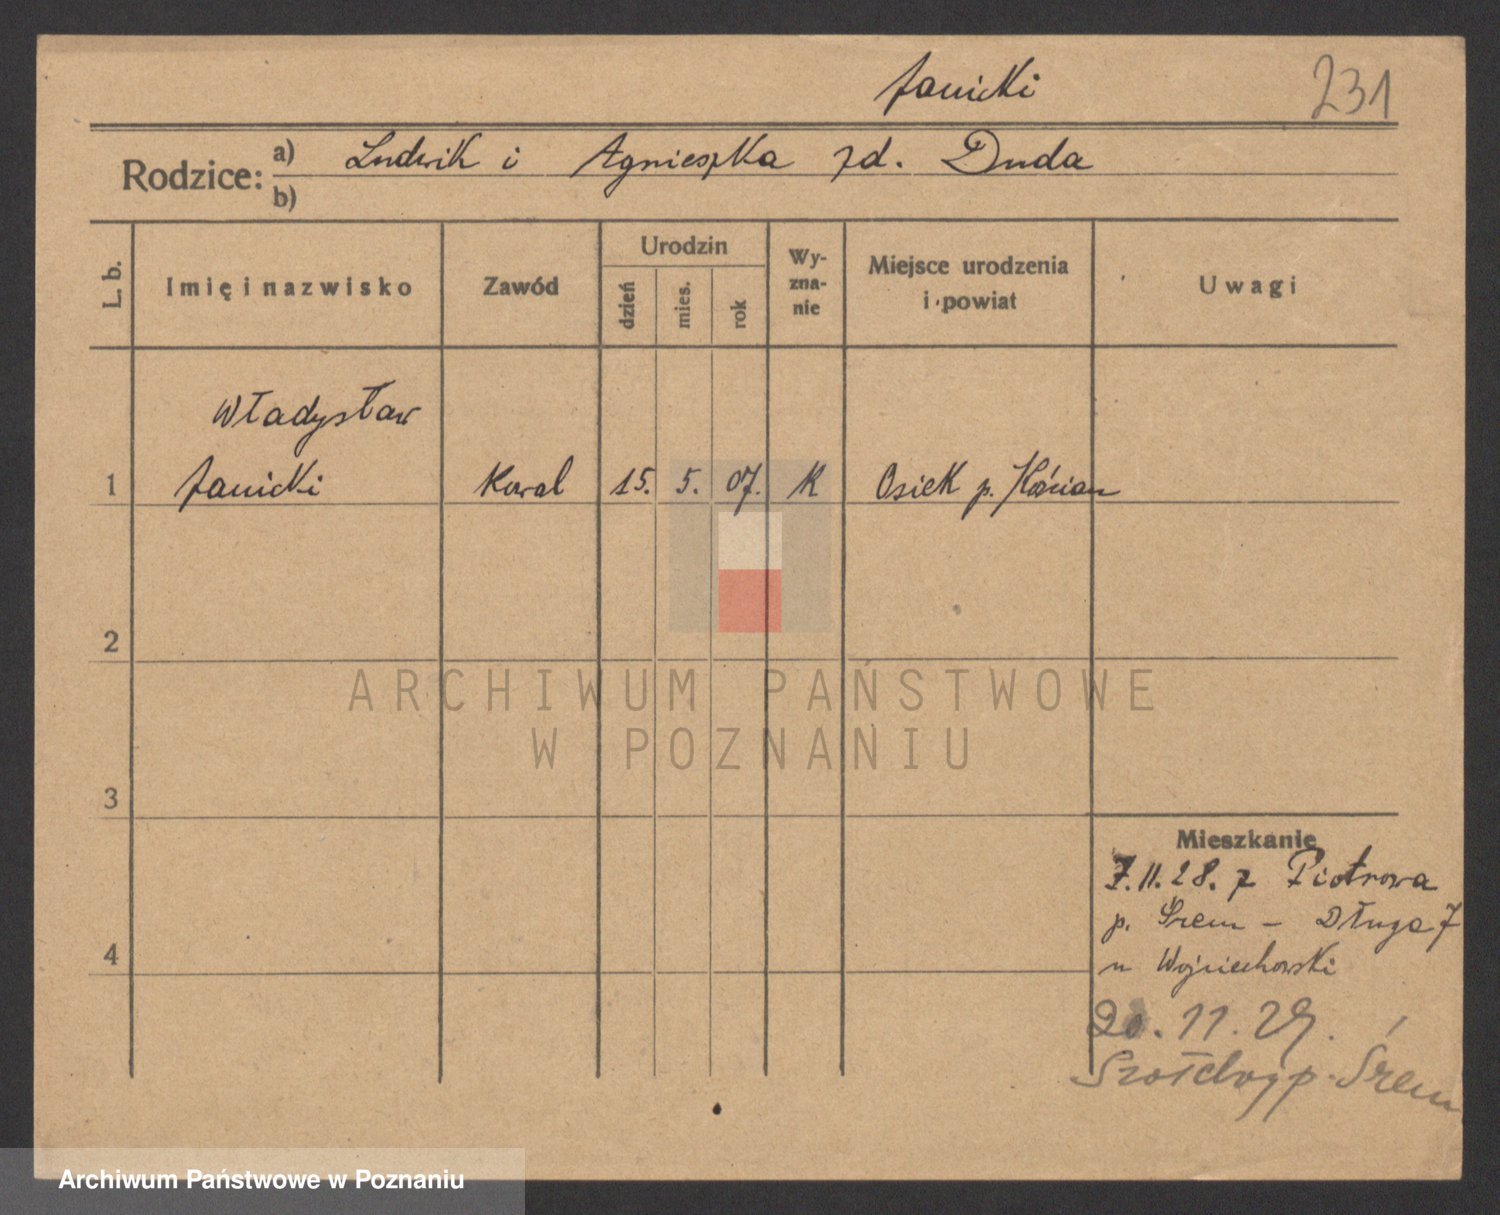 Janicki
231
Rodzice: a) Ludwik i Agnieszka zd. Duda
b)
L. b.
Imię i nazwisko
Zawód
Urodzin
dzień
mies.
rok
Wy-
zna-
nie
Miejsce urodzenia
i powiat
Uwagi
Władysław
1 Janicki Kowal 15. 5. 07. K Osiek p. Kościan
2
ARCHIWUM PAŃSTWOWE
W POZNANIU
3
Mieszkanie
7.11.28. z Piotrowa
p. Śrem – Długa 7
u Wojciechowski
4
20.11.29.
p. Śrem
Archiwum Państwowe w Poznaniu